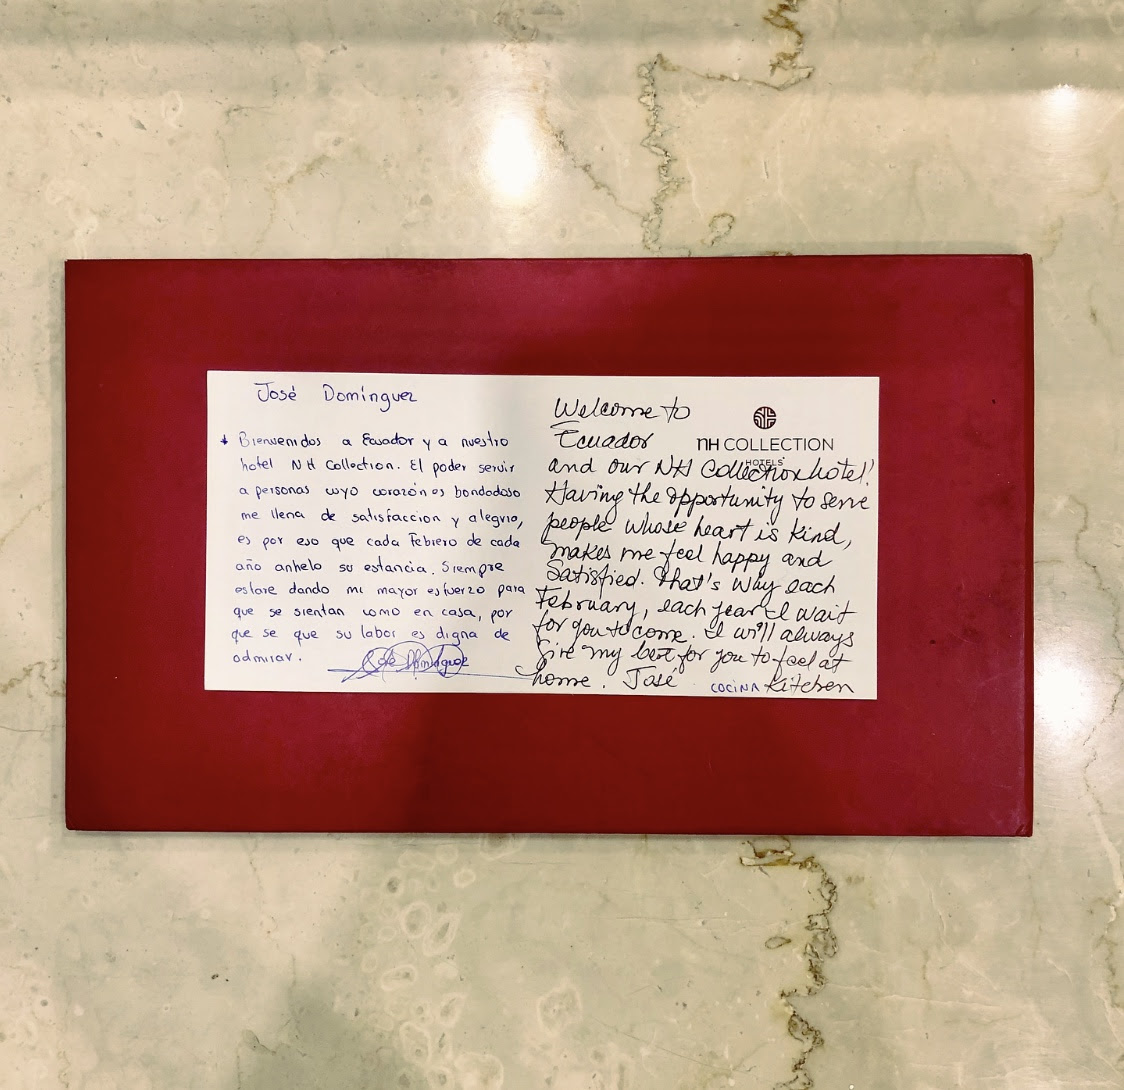 José Domínguez
* Bienvenidos a Ecuador y a nuestro
hotel NH Collection. El poder servir
a personas cuyo corazón es bondadoso
me llena de satisfaccion y alegria,
es por eso que cada Febrero de cada
año anhelo su estancia. Siempre
estare dando mi mayor esfuerzo para
que se sientan como en casa, por
que se que su labor es digna de
admirar.
José Domínguez
Welcome to
Ecuador
NH COLLECTION
HOTELS
and our NH Collection hotel!
Having the opportunity to serve
people whose heart is kind,
makes me feel happy and
Satisfied. That's way each
February, each year I wait
for you to come. I will always
give my best for you to feel at
home. José
COCINA Kitchen